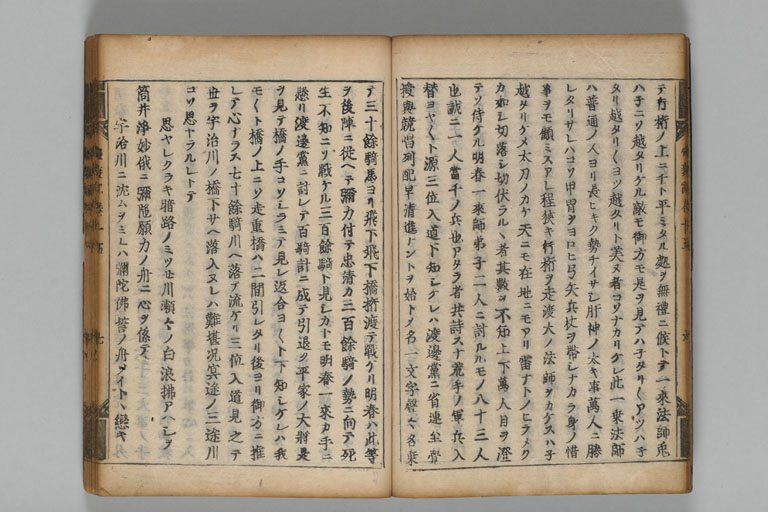 テ行桁ノ上ニチト平ミタル処ヲ無禮ニ候トテ一來法師兎
ハ子ニソ越タリケル敵モ御方モ是ヲ見テハ子タリ〱アツハ子
タリ越タリ〱ヨツ越タリト美ヌ者コソナカリケレ此一來法師
ハ普通ノ人ヨリ長ヒキク勢チイサシ肝神ノ太キ事萬人ニ勝
レタリサレハコソ甲冑ヲヨロヒ弓矢兵杖ヲ帶シナカラ身ノ惜
事ヲモ顧ミスアレ程狹キ行桁ヲ走渡大ノ法師ヲカケスハ子
越タリケメ太刀ノカケ天ニモ在地ニモアリ雷ナトノヒラメク
カ如シ切落シ切伏ラルヽ者其數ヲ不知上下萬人目ヲ澄
テソ侍ケル明春一來師弟子二人ニ討ルヽモノ八十三人
也誠ニ一人當千ノ兵也アタラ者共討スナ荒手ノ軍兵入
替ヨヤ〱ト源三位入道下知シケレハ渡邊黨ニ省連至覺
授與競唱列配早清進ナントヲ始トノ名一文字聲々各乘
テ三十餘騎馬ヨリ飛下飛下橋桁渡テ戰ケリ明春ハ此等
ヲ後陣ニ從ヘテ彌力付テ忠清カ三百餘騎ノ勢ニ向テ死
生不知ニソ戰ケル三百餘騎ト見シカトモ明春一來カ手ニ
懸リ渡邊黨ニ討レテ百騎計ニ成テ引退ク平家ノ大將是
ヲ見テ橋ノ手コソシラミテ見レ返合ヨ〱ト下知シケレハ我
モ〱ト橋ノ上ニソ走重橋ハ二間引レタリ後ヨリ御方ニ推
レテ心ナラス七十餘騎川ヘ落テ流ケリ三位入道見之テ
世ヲ宇治川ノ橋下サヘ落入ヌレハ難堪况冥途ノ三途川
コソ思ヤラルレトテ
思ヤレクラキ暗路ノミツセ川瀬々ノ白浪拂アヘシヲ
筒井淨妙俄ニ彌陀願力ノ舟ニ心ヲ係テ
宇治川ニ沈ムヲミレハ彌陀佛誓ノ舟ソイトヽ戀キ